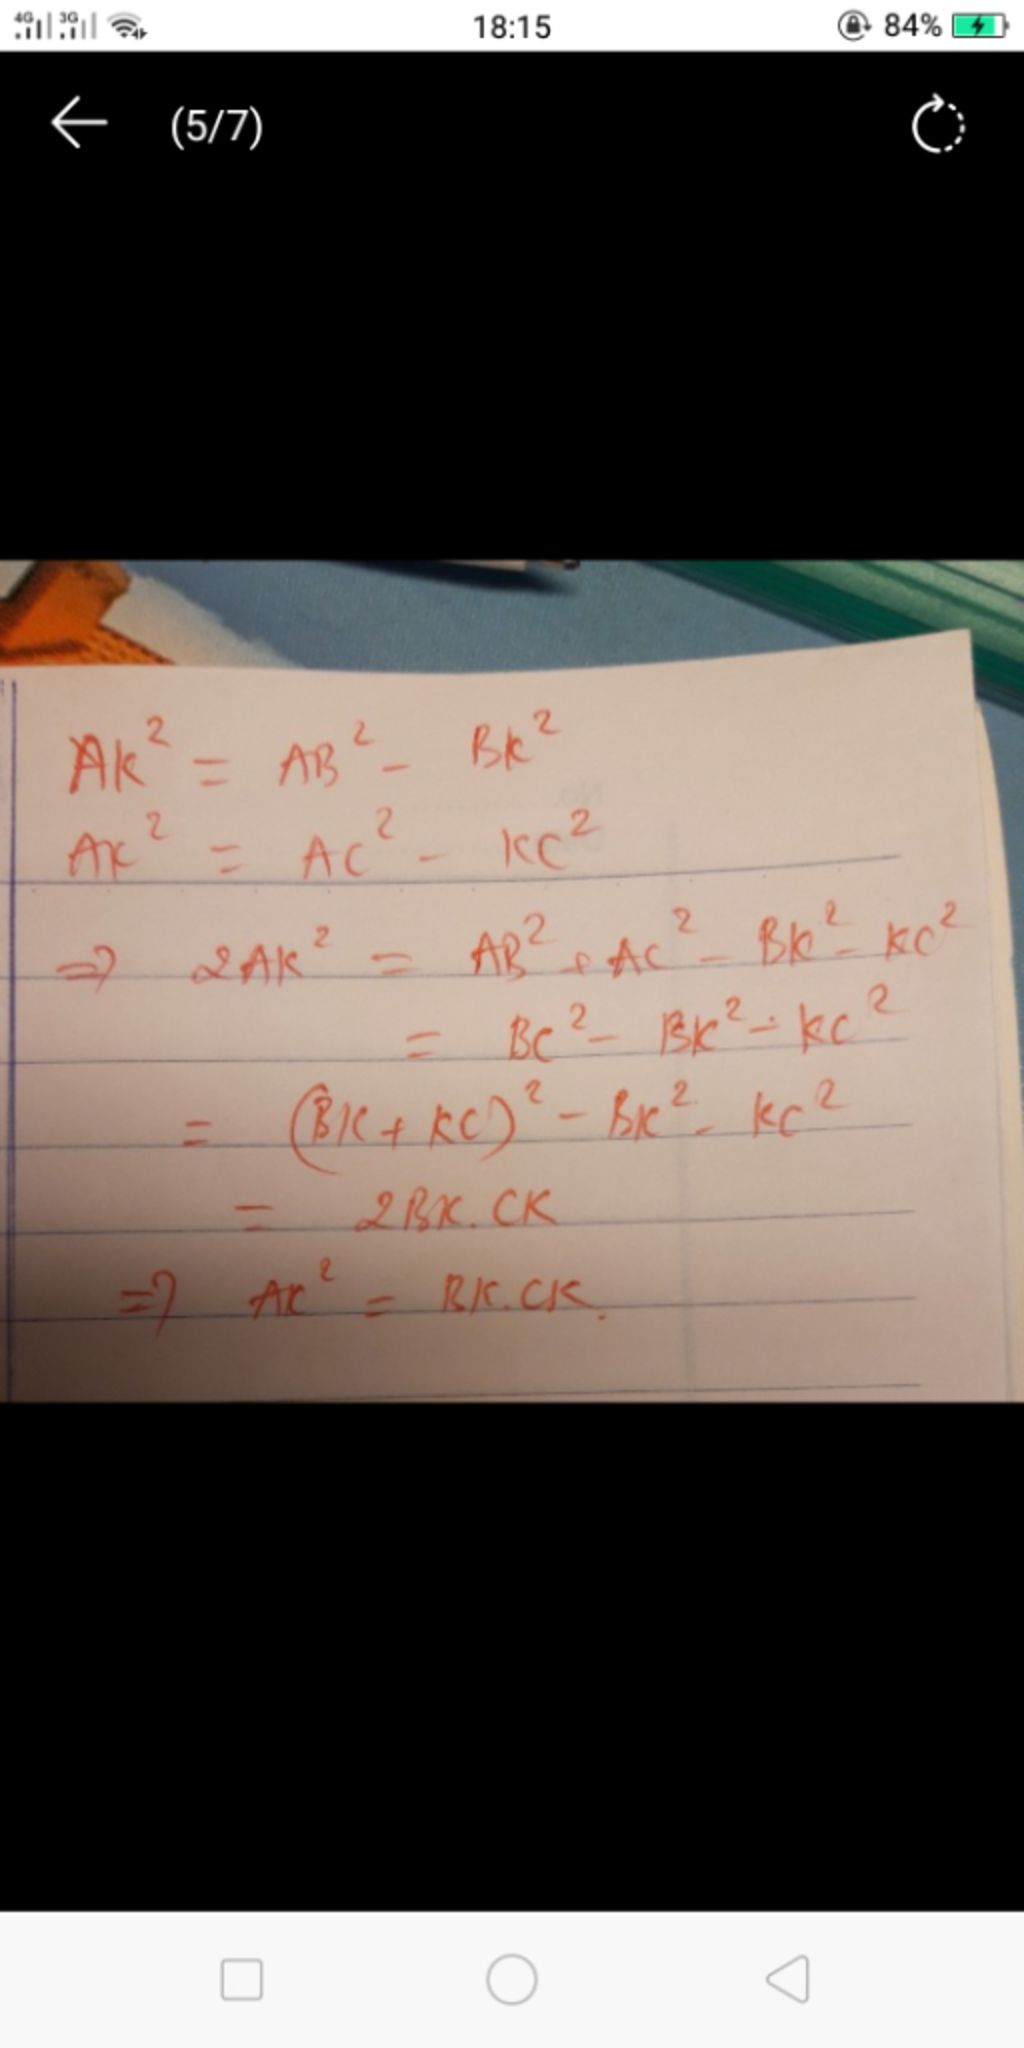 4G 3G 18:15 84%
(5/7)
AK² = AB² - BK²
AK² = AC² - KC²
=> 2AK² = AB² + AC² - BK² - KC²
= BC² - BK² - KC²
= (BK + KC)² - BK² - KC²
= 2BK.CK
=> AK² = BK.CK.